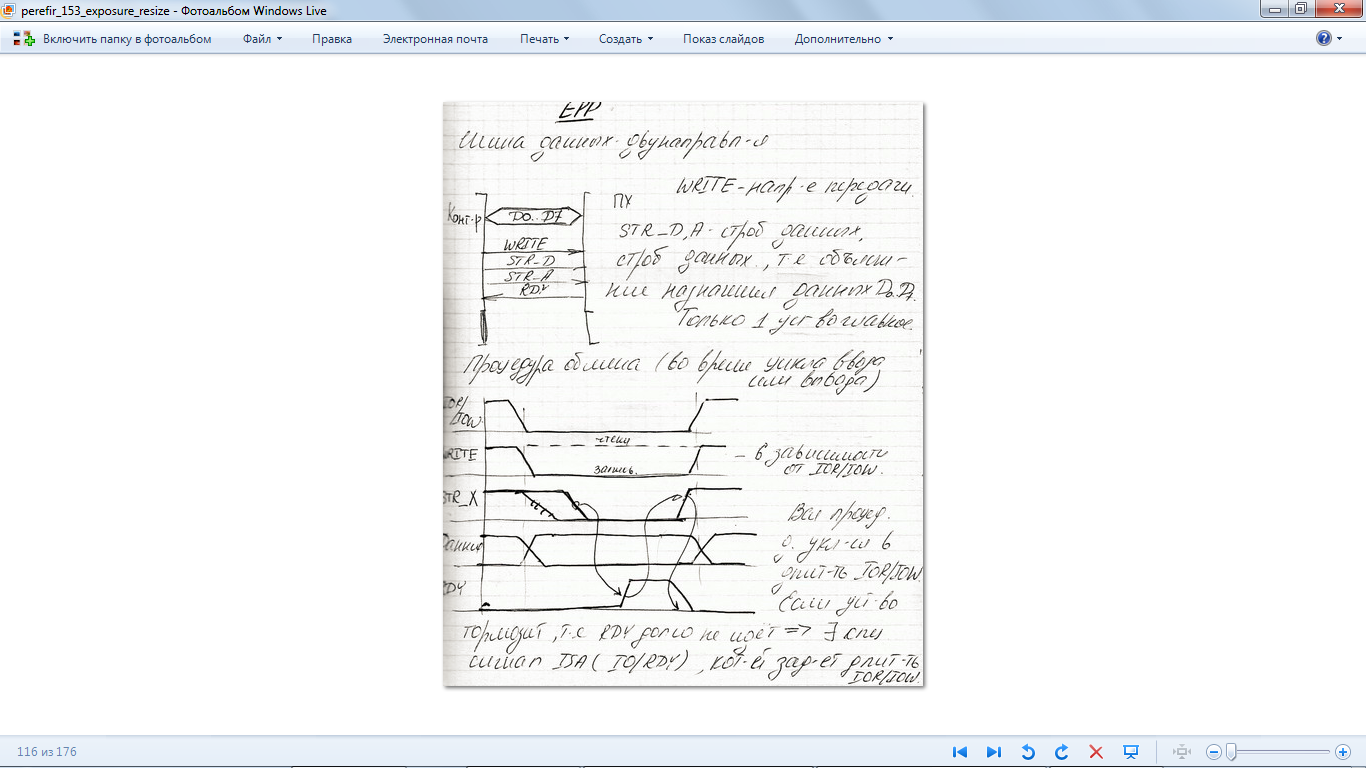 perefir_153_exposure_resize - Фотоальбом Windows Live
Включить папку в фотоальбом Файл Правка Электронная почта Печать Создать Показ слайдов Дополнительно
EPP
Шина данных двунаправл-я
WRITE - напр-е передачи.
Конт-р D0..D7 ПУ
WRITE
STR_D
STR_A
RDY
STR_D,A - строб данных,
строб данных, т.е объявле-
ние назначения данных D0..D7.
Только 1 уст-во главное.
Процедура обмена (во время цикла ввода
или вывода)
IOR/
IOW
чтение
WRITE
запись.
- в зависимости
от IOR/IOW.
STR_X
Данные
RDY
Вся процед.
д. укл-ся в
длит-ть IOR/IOW.
Если уст-во
тормозит, т.е RDY долго не идёт => ∃ спец
сигнал ISA (IO/RDY), кот-ый зад-ет длит-ть
IOR/IOW.
116 из 176